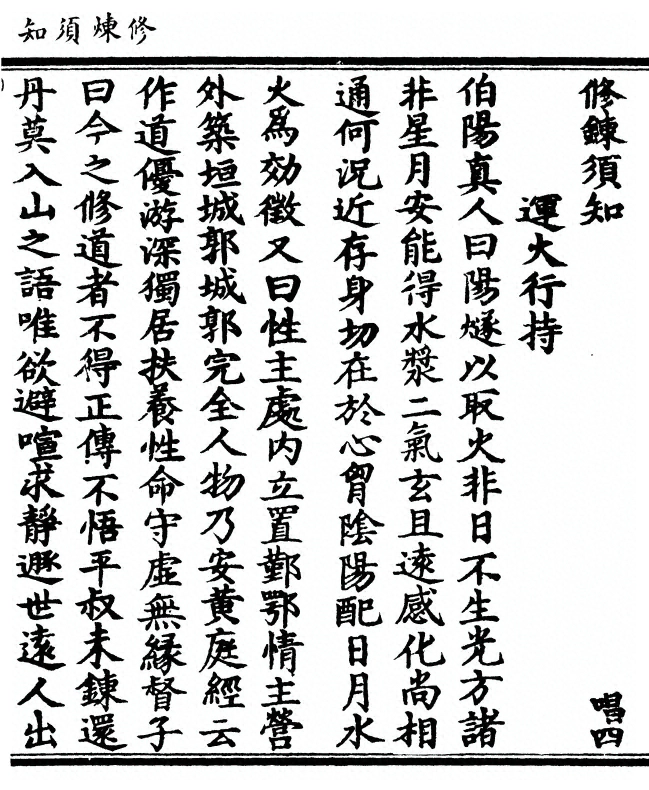 修煉須知
修鍊須知 唱四
運火行持
伯陽真人曰陽燧以取火非日不生光方諸
非星月安能得水漿二氣玄且遠感化尚相
通何況近存身切在於心胷陰陽配日月水
火爲効徵又曰性主處内立置鄞鄂情主營
外築垣城郭城郭完全人物乃安黄庭經云
作道優游深獨居扶養性命守虛無緣督子
曰今之修道者不得正傳不悟平叔未鍊還
丹莫入山之語唯欲避喧求靜遯世遠人出